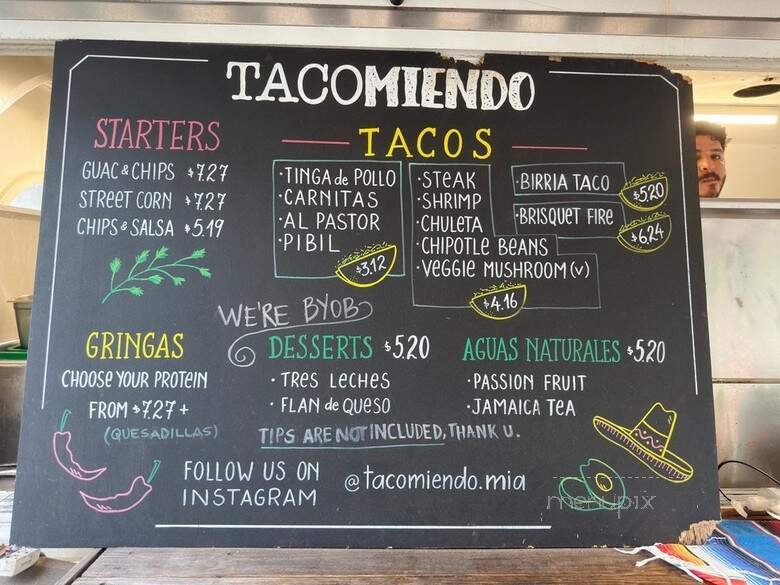 TACOMIENDO
STARTERS
GUAC & CHIPS $7.27
STREET CORN $7.27
CHIPS & SALSA $5.19
TACOS
· TINGA de POLLO
· CARNITAS
· AL PASTOR
· PIBIL
$3.12
· STEAK
· SHRIMP
· CHULETA
· CHIPOTLE BEANS
· VEGGIE MUSHROOM (V)
$4.16
· BIRRIA TACO $5.20
· BRISQUET FIRE $6.24
WE'RE BYOB
GRINGAS
CHOOSE YOUR PROTEIN
FROM $7.27 +
(QUESADILLAS)
DESSERTS $5.20
· TRES LECHES
· FLAN de QUESO
AGUAS NATURALES $5.20
· PASSION FRUIT
· JAMAICA TEA
TIPS ARE NOT INCLUDED, THANK U.
FOLLOW US ON
INSTAGRAM
@tacomiendo.mia
menupix